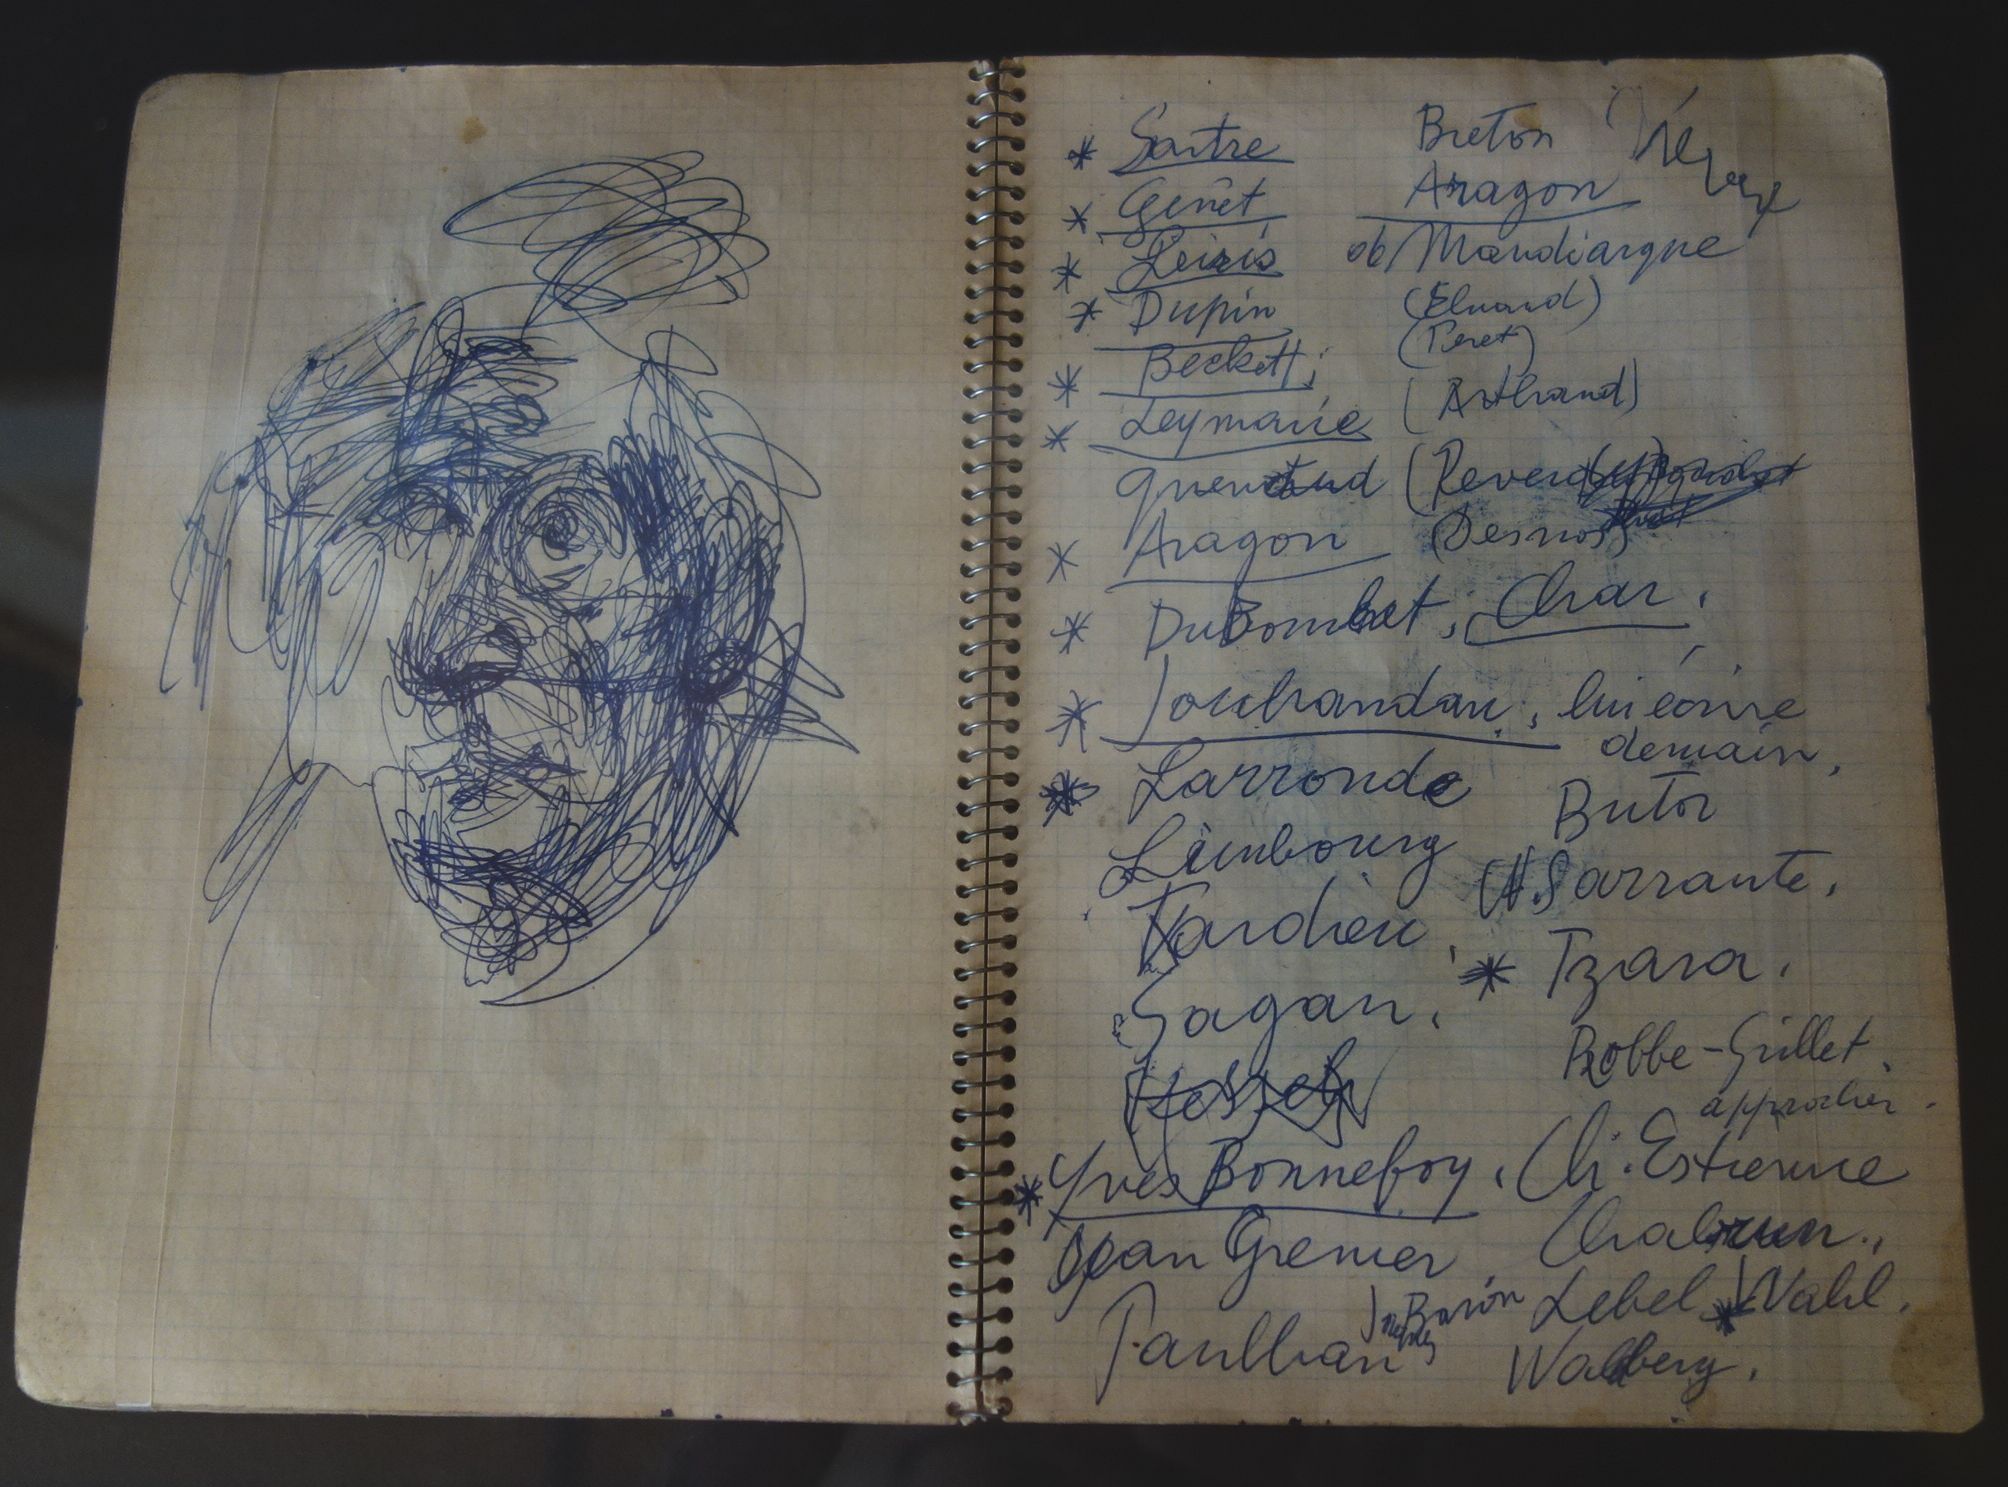 * Sartre
* Genêt
* Leiris
* Dupin
* Beckett,
* Leymarie
Queneaud
* Aragon
* Dubombet, Char.
* Jouhandau, lui écrire
demain,
* Larronde
Limbourg
Tardieu,
Sagan,
* Yves Bonnefoy,
Jean Grenier
Paulhan
Baron
Breton
Aragon
Mandiargue
(Éluard)
(Peret)
(Arthaud)
(Reverdy)
(Desnos)
Butor
N. Sarraute,
* Tzara,
Robbe-Grillet
approcher.
Ch. Estienne
Lebel * Wahl.
Walberg.